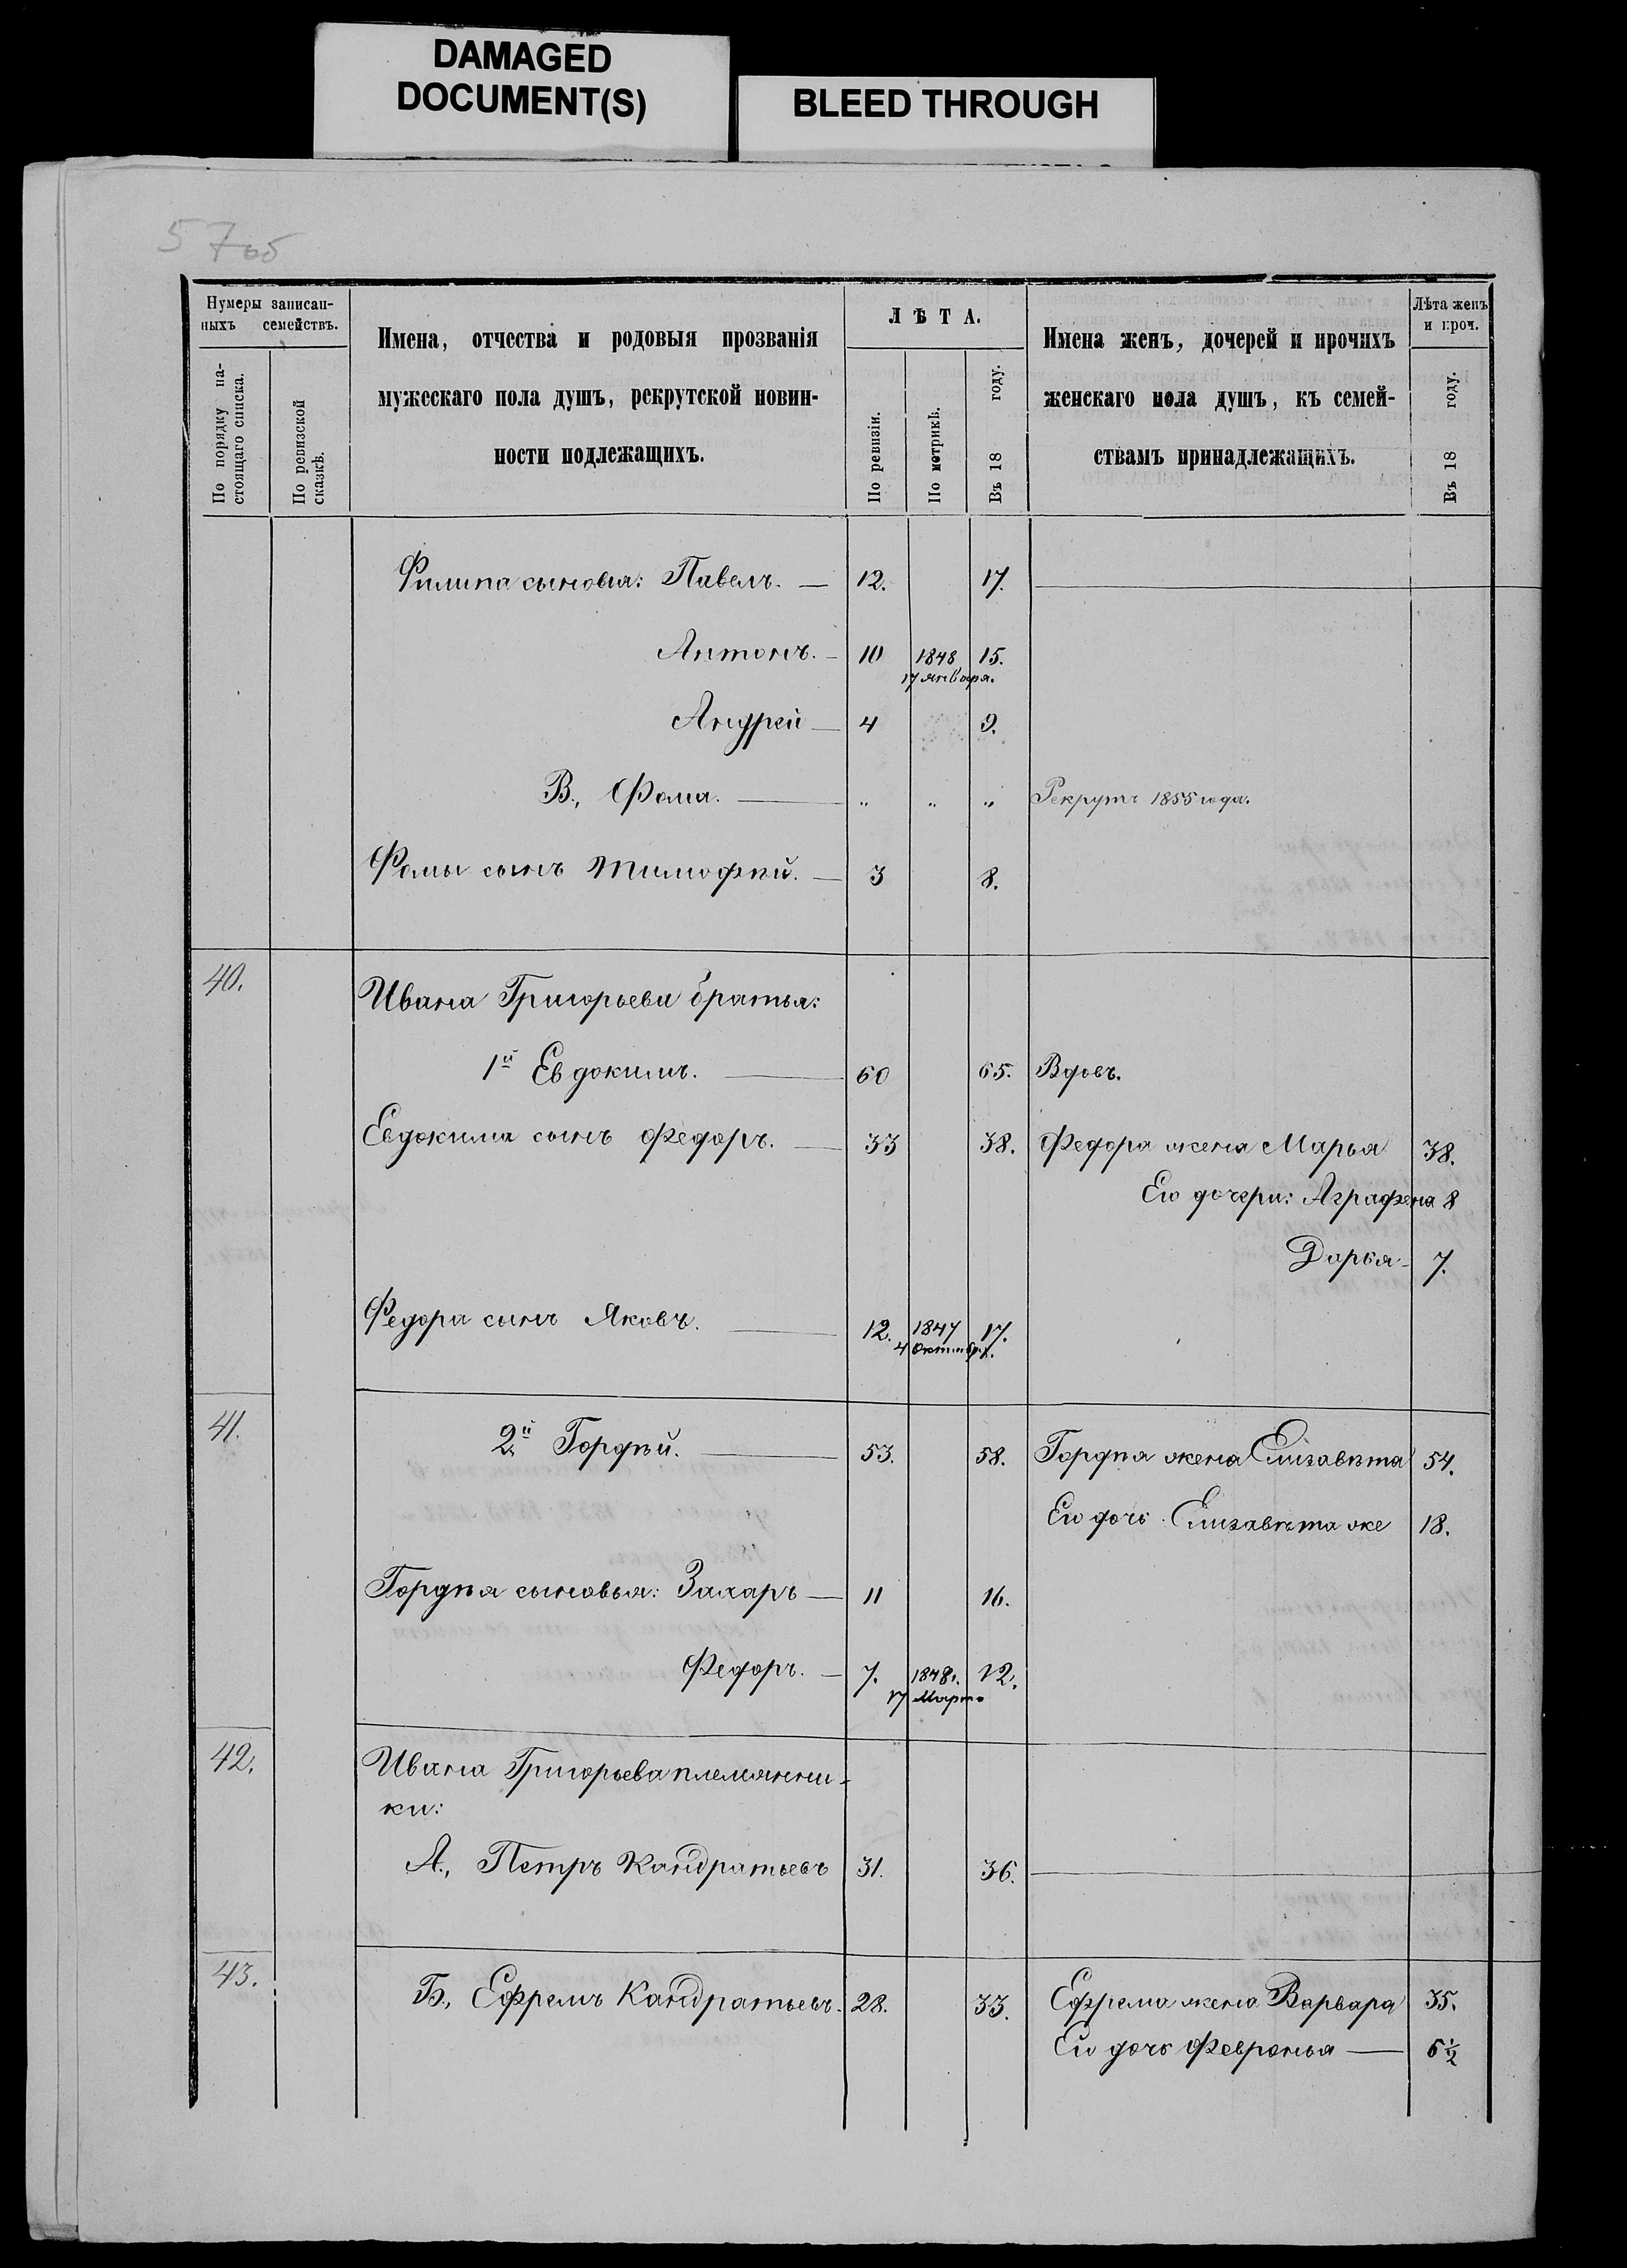 DAMAGED
DOCUMENT(S)
BLEED THROUGH
57об
Нумеры записан-
ныхъ семействъ.
По порядку на-
стоящаго списка.
По ревизской
сказкѣ.
Имена, отчества и родовыя прозванія
мужескаго пола душъ, рекрутской повин-
ности подлежащихъ.
ЛѢТА.
По ревизіи.
По метрикѣ.
Въ 18 году.
Имена женъ, дочерей и прочихъ
женскаго пола душъ, къ семей-
ствамъ принадлежащихъ.
Лѣта женъ
и проч.
Въ 18 году.
Филипа сыновья: Павелъ. — 12. 17.
Антонъ. — 10 1848 15.
17 января.
Андрей — 4 9.
В., Фома. — " " " Рекрутъ 1855 года.
Фомы сынъ Тимофѣй. — 3 8.
40.
Ивана Григорьева братья:
1й Евдокимъ. — 60 65. Вдовъ.
Евдокима сынъ Федоръ. — 33 38. Федора жена Марья 38.
Его дочери: Аграфена 8
Дарья — 7.
Федора сынъ Яковъ. — 12. 1847 17.
4 Октября.
41.
2й Гордѣй. — 53. 58. Гордѣя жена Елизавѣта 54.
Его дочь Елизавѣта же 18.
Гордѣя сыновья: Захаръ — 11 16.
Федоръ. — 7. 1848. 12.
17 Марта
42.
Ивана Григорьева племянни-
ки:
А., Петръ Кандратьевъ 31. 36.
43.
Б., Ефремъ Кандратьевъ. 28. 33. Ефрема жена Варвара 35.
Его дочь Февронья — 6½